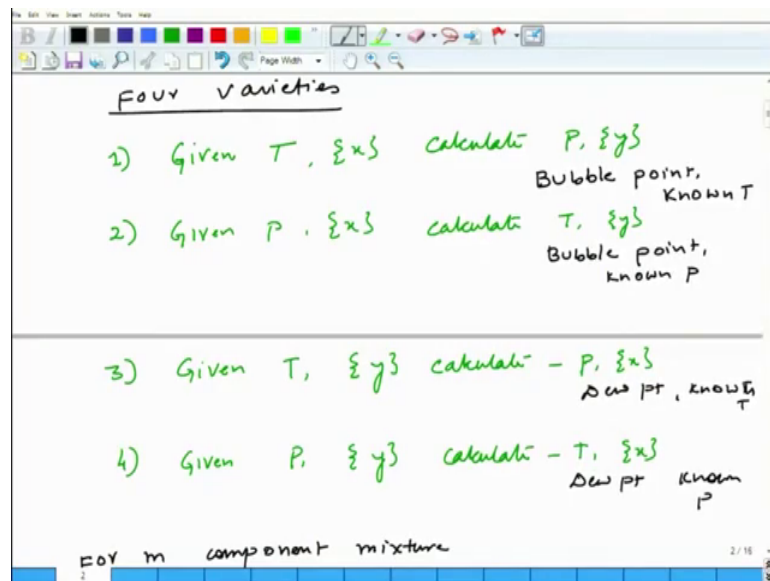 File Edit View Insert Actions Tools Help
B I
Page Width
Four varieties
1) Given T, {x} calculate P, {y}
Bubble point,
Known T
2) Given P, {x} calculate T, {y}
Bubble point,
known P
3) Given T, {y} calculate - P, {x}
Dew pt, known
T
4) Given P, {y} calculate - T, {x}
Dew pt known
P
For m component mixture
2/16
2